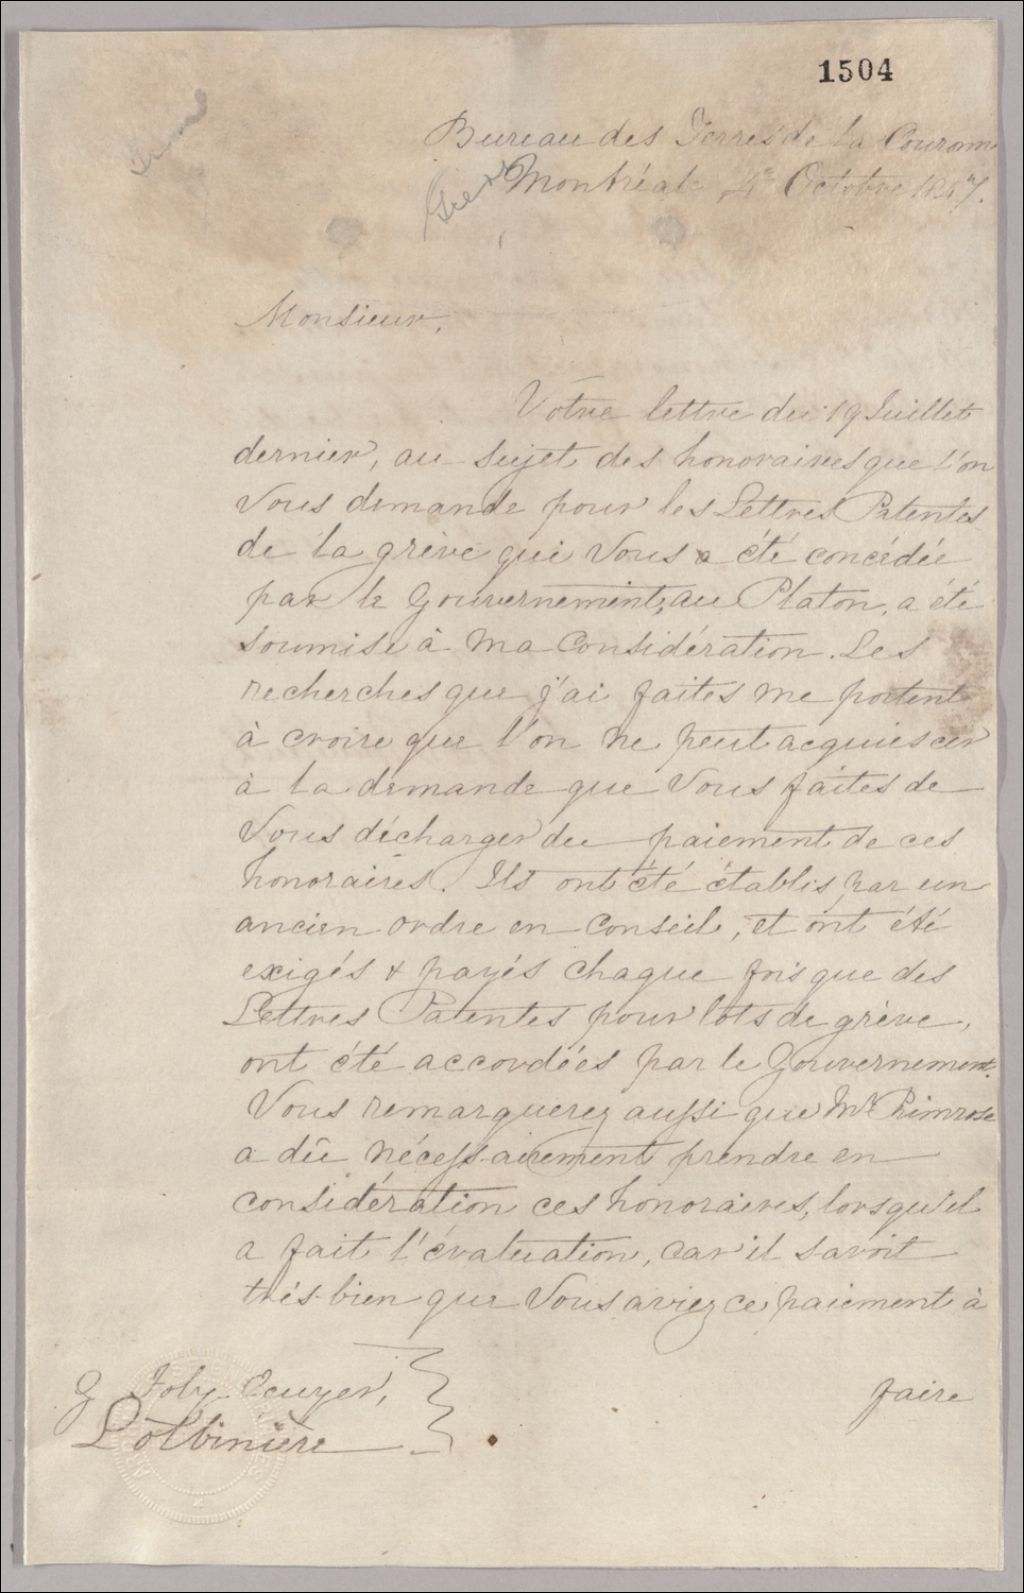 1504
Bureau des Terres de la Couronne
Montréal 4e Octobre 1847.
Monsieur,
Votre lettre du 19 Juillet
dernier, au sujet des honoraires que l'on
vous demande pour les Lettres Patentes
de la grève qui vous a été concédée
par le Gouvernement, au Platon, a été
soumise à ma considération. Les
recherches que j'ai faites me portent
à croire que l'on ne peut acquiescer
à la demande que vous faites de
vous décharger du paiement de ces
honoraires. Ils ont été établis par un
ancien ordre en conseil, et ont été
exigés & payés chaque fois que des
Lettres Patentes pour lots de grève,
ont été accordées par le Gouvernement.
Vous remarquerez aussi que Mr Primrose
a dû nécessairement prendre en
considération ces honoraires, lorsqu'il
a fait l'évaluation, car il savoit
très-bien que vous aviez ce paiement à
faire
G Joly Ecuyer,
Lotbinière